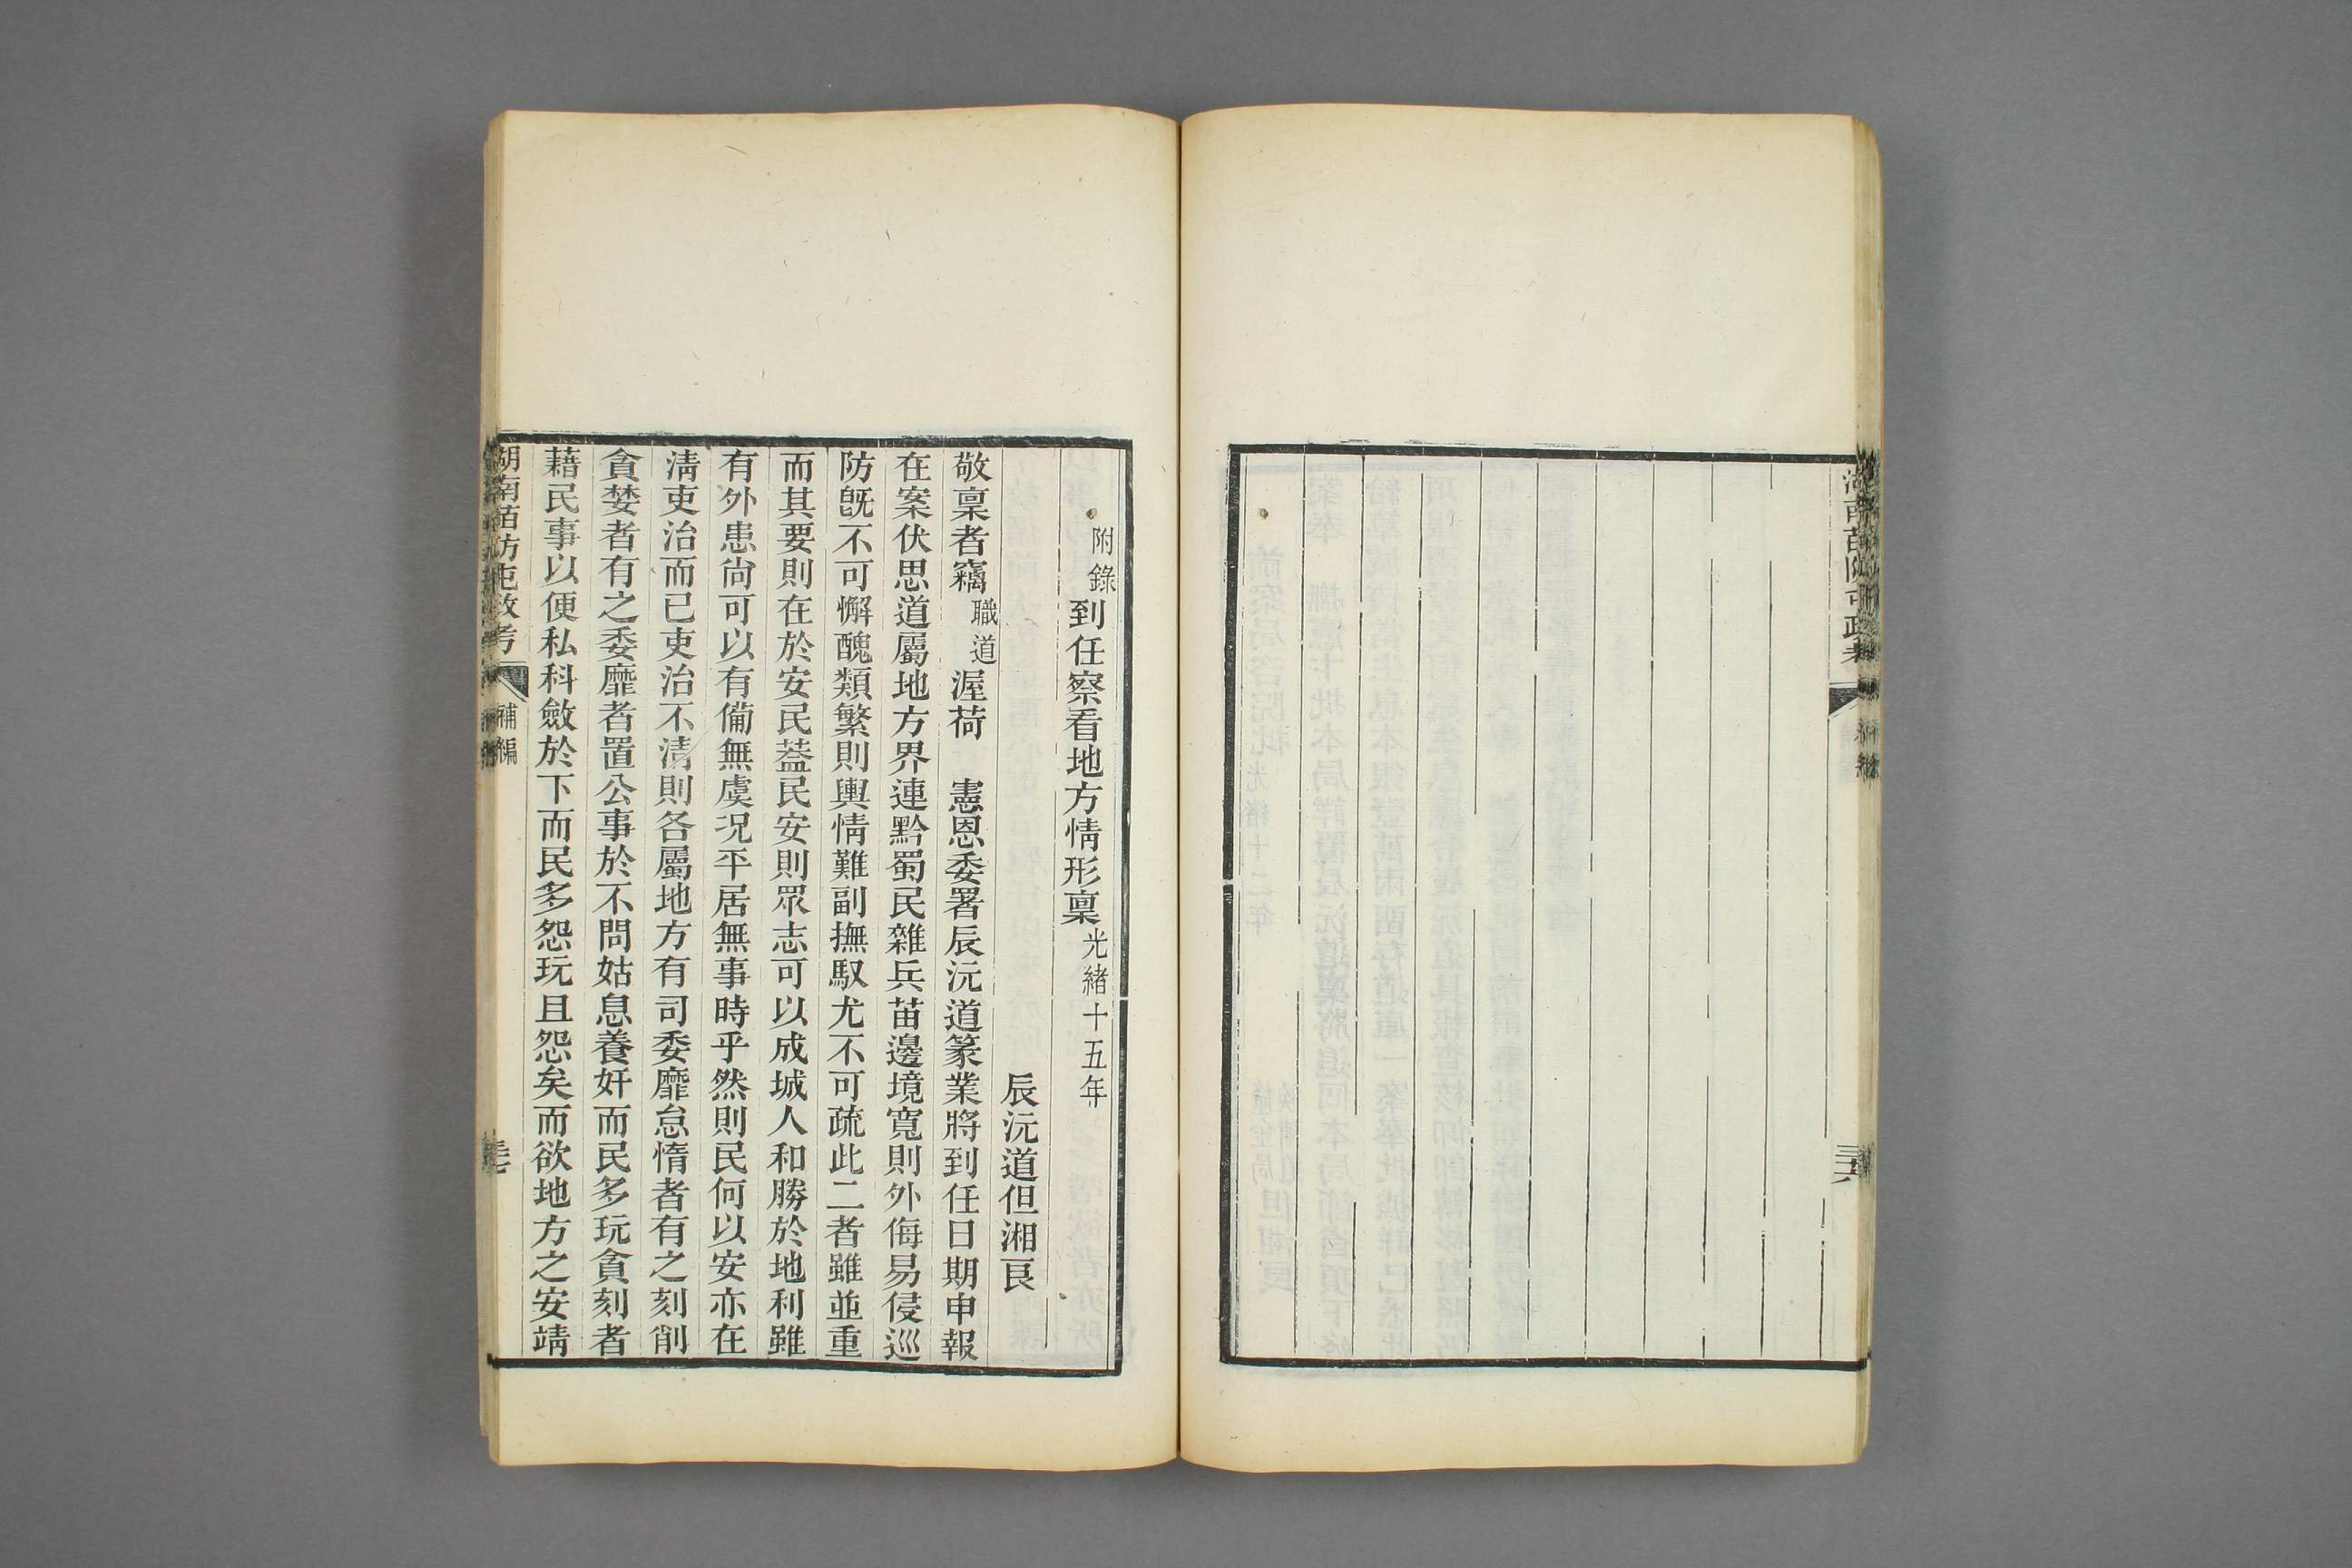 湖南苗防屯政考
補編
附錄到任察看地方情形稟光緒十五年
辰沅道但湘良
敬稟者竊職道渥荷 憲恩委署辰沅道篆業將到任日期申報
在案伏思道屬地方界連黔蜀民雜兵苗邊境寬則外侮易侵巡
防旣不可懈醜類繁則輿情難副撫馭尤不可疏此二者雖並重
而其要則在於安民葢民安則眾志可以成城人和勝於地利雖
有外患尙可以有備無虞况平居無事時乎然則民何以安亦在
淸吏治而已吏治不淸則各屬地方有司委靡怠惰者有之刻削
貪婪者有之委靡者置公事於不問姑息養奸而民多玩貪刻者
藉民事以便私科斂於下而民多怨玩且怨矣而欲地方之安靖
湖南苗防屯政考
補編